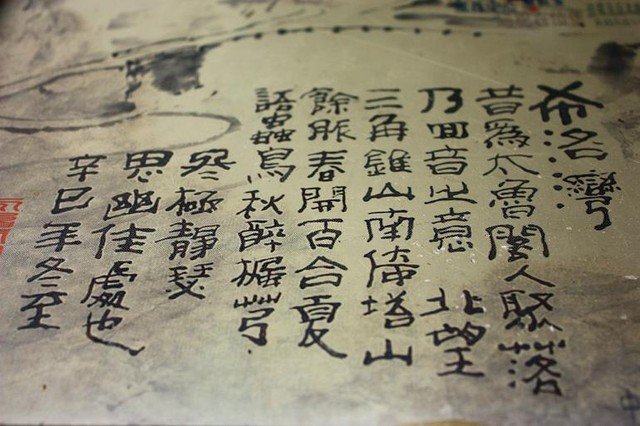 希洛灣
昔為太魯閣人聚落
乃回音之意 北望
三角錐山南倚塔山
餘脈春開百合夏
語蟲鳥秋醉芎
冬極靜瑟
思幽佳處也
辛巳年冬至